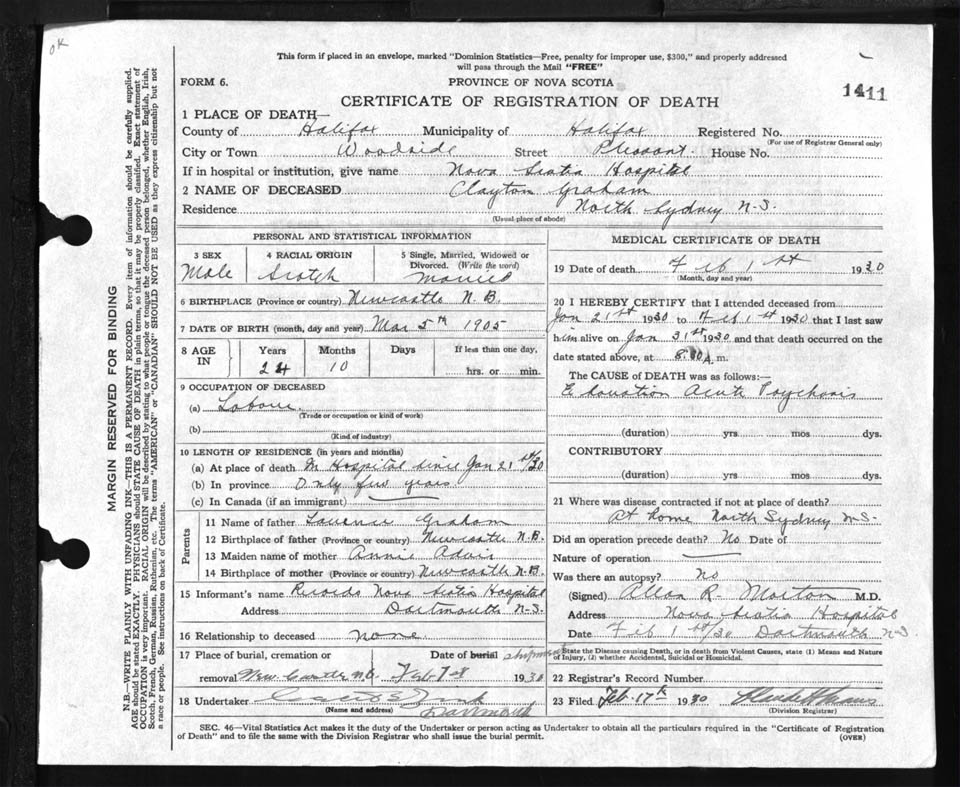 OK
This form if placed in an envelope, marked "Dominion Statistics—Free, penalty for improper use, $300," and properly addressed
will pass through the Mail "FREE"
FORM 6.
PROVINCE OF NOVA SCOTIA
1411
CERTIFICATE OF REGISTRATION OF DEATH
1 PLACE OF DEATH—
County of Halifax Municipality of Halifax Registered No.
(For use of Registrar General only)
City or Town Woodside Street Pleasant. House No.
If in hospital or institution, give name Nova Scotia Hospital
2 NAME OF DECEASED Clayton Graham
Residence North Sydney N.S.
(Usual place of abode)
PERSONAL AND STATISTICAL INFORMATION
3 SEX Male
4 RACIAL ORIGIN Scotch
5 Single, Married, Widowed or Divorced. (Write the word) Married
6 BIRTHPLACE (Province or country) Newcastle N.B.
7 DATE OF BIRTH (month, day and year) Mar 5th 1905
8 AGE IN Years Months Days If less than one day,
24 10 hrs. or min.
9 OCCUPATION OF DECEASED
(a)
(Trade or occupation or kind of work)
(b)
(Kind of industry)
10 LENGTH OF RESIDENCE (in years and months)
(a) At place of death In Hospital since Jan 21st/30
(b) In province Only few years
(c) In Canada (if an immigrant)
Parents
11 Name of father Graham
12 Birthplace of father (Province or country) Newcastle N.B.
13 Maiden name of mother Annie
14 Birthplace of mother (Province or country) Newcastle N.B.
15 Informant's name Records Nova Scotia Hospital
Address Dartmouth N.S.
16 Relationship to deceased none
17 Place of burial, cremation or Date of burial
removal Feb 1930
18 Undertaker
(Name and address) Dartmouth
MEDICAL CERTIFICATE OF DEATH
19 Date of death Feb 1st 1930
(Month, day and year)
20 I HEREBY CERTIFY that I attended deceased from
Jan 21st 1930 to Feb 1st 1930 that I last saw
him alive on Jan 31st 1930 and that death occurred on the
date stated above, at A.m.
The CAUSE of DEATH was as follows:—
Exhaustion Acute Psychosis
(duration) yrs mos dys.
CONTRIBUTORY
(duration) yrs mos dys.
21 Where was disease contracted if not at place of death?
At home North Sydney N.S.
Did an operation precede death? No Date of
Nature of operation
Was there an autopsy? No
(Signed) Allan R. Morton M.D.
Address Nova Scotia Hospital
Date Feb 1st/30 Dartmouth N.S
State the Disease causing Death, or in death from Violent Causes, state (1) Means and Nature
of Injury, (2) whether Accidental, Suicidal or Homicidal.
22 Registrar's Record Number
23 Filed Feb. 17th 1930
(Division Registrar)
SEC. 46—Vital Statistics Act makes it the duty of the Undertaker or person acting as Undertaker to obtain all the particulars required in the "Certificate of Registration
of Death" and to file the same with the Division Registrar who shall issue the burial permit.
(OVER)
MARGIN RESERVED FOR BINDING
N.B.—WRITE PLAINLY WITH UNFADING INK—THIS IS A PERMANENT RECORD. Every item of information should be carefully supplied.
AGE should be stated EXACTLY. PHYSICIANS should STATE CAUSE OF DEATH in plain terms, so that it may be properly classified. Exact statement of
OCCUPATION is very important. RACIAL ORIGIN will be described by stating to what people or tongue the deceased person belonged, whether English, Irish,
Scotch, French, German, Russian, Ruthenian, etc. The terms "AMERICAN" or "CANADIAN" SHOULD NOT BE USED as they express citizenship but not
a race or people. See instructions on back of Certificate.